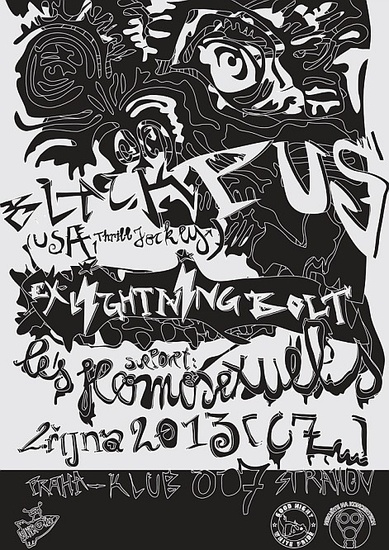 BLACK PUS
(USA, Thrill Jockey)
EX LIGHTNING BOLT
support:
Les Homosexuels
2 října 2013 [CZ]
PRAHA – KLUB 007 STRAHOV
GOOD NIGHT
WHITE PRIDE